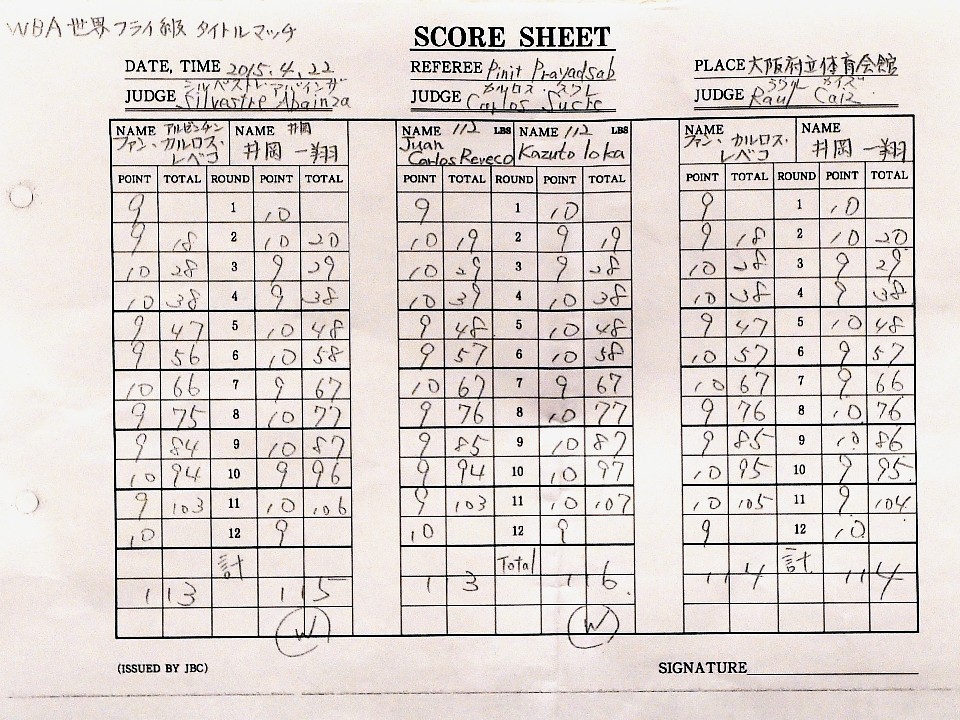 WBA世界フライ級 タイトルマッチ
SCORE SHEET
DATE, TIME 2015.4.22 REFEREE Pinit Prayadsab PLACE 大阪府立体育会館
シルベストレ・アバインザ カルロス・スクレ ラウル カイズ
JUDGE Silvestre Abainza JUDGE Carlos Sucre JUDGE Raul Caiz
NAME アルゼンチン NAME 井岡 NAME 112 LBS NAME 112 LBS NAME NAME
ファン・カルロス・レベコ 井岡 一翔 Juan Carlos Reveco Kazuto Ioka ファン・カルロス・レベコ 井岡 一翔
POINT TOTAL ROUND POINT TOTAL POINT TOTAL ROUND POINT TOTAL POINT TOTAL ROUND POINT TOTAL
9 1 10 9 1 10 9 1 10
9 18 2 10 20 10 19 2 9 19 9 18 2 10 20
10 28 3 9 29 10 29 3 9 28 10 28 3 9 29
10 38 4 9 38 10 39 4 10 38 10 38 4 9 38
9 47 5 10 48 9 48 5 10 48 9 47 5 10 48
9 56 6 10 58 9 57 6 10 58 10 57 6 9 57
10 66 7 9 67 10 67 7 9 67 10 67 7 9 66
9 75 8 10 77 9 76 8 10 77 9 76 8 10 76
9 84 9 10 87 9 85 9 10 87 9 85 9 10 86
10 94 10 9 96 9 94 10 10 97 10 95 10 9 95
9 103 11 10 106 9 103 11 10 107 10 105 11 9 104
10 12 9 10 12 9 9 12 10
計 Total 計
113 115 113 116 114 114
W W
(ISSUED BY JBC) SIGNATURE